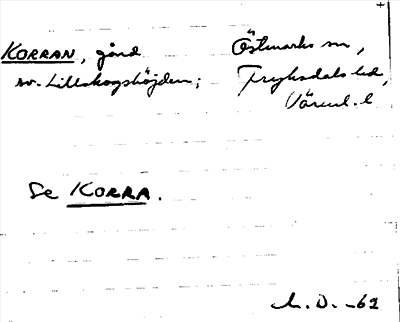 KORRAN, gård
sv. Lillskogshöjden;
Östmarks sn,
Fryksdals hd,
Värml. l
Se KORRA.
L. D. -62